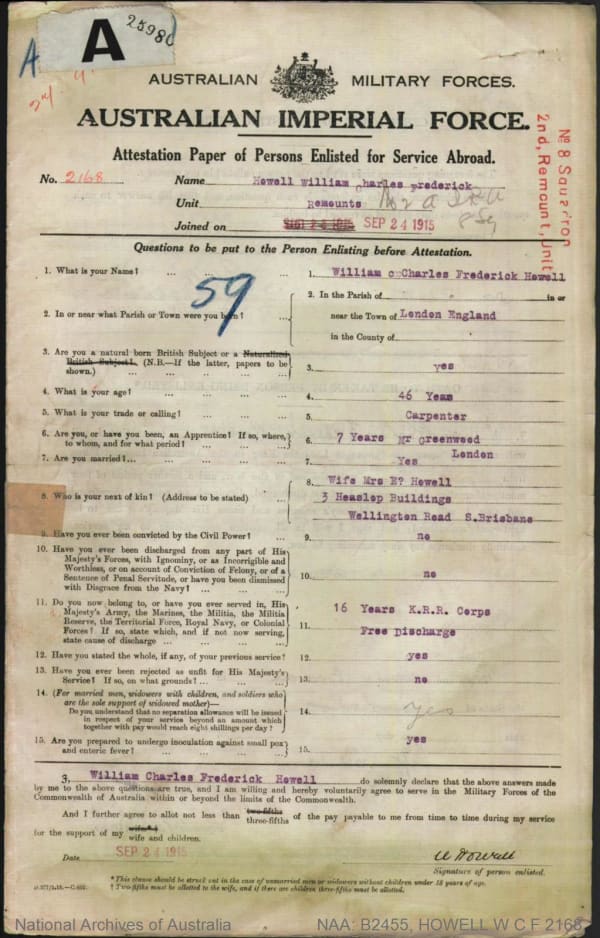 25980
A
A
AUSTRALIAN MILITARY FORCES.
AUSTRALIAN IMPERIAL FORCE.
Attestation Paper of Persons Enlisted for Service Abroad.
No. 2168 Name Howell William Charles Frederick
Unit Remounts
Joined on SEP 24 1915
No 8 Squadron
2nd, Remount, Unit
Questions to be put to the Person Enlisting before Attestation.
59
1. What is your Name? ... ... ... ... 1. William c Charles Frederick Howell
2. In or near what Parish or Town were you born? ... 2. In the Parish of in or
near the Town of London England
in the County of
3. Are you a natural born British Subject or a Naturalized
British Subject? (N.B.—If the latter, papers to be
shown.) 3. yes
4. What is your age? 4. 46 Yeas
5. What is your trade or calling? 5. Carpenter
6. Are you, or have you been, an Apprentice? If so, where,
to whom, and for what period? 6. 7 Years Mr Greenwood
London
7. Are you married?... 7. Yes
8. Who is your next of kin? (Address to be stated) 8. Wife Mrs E? Howell
3 Heaslop Buildings
Wellington Road S.Brisbane
9. Have you ever been convicted by the Civil Power? 9. no
10. Have you ever been discharged from any part of His
Majesty's Forces, with Ignominy, or as Incorrigible and
Worthless, or on account of Conviction of Felony, or of a
Sentence of Penal Servitude, or have you been dismissed
with Disgrace from the Navy? 10. no
11. Do you now belong to, or have you ever served in, His
Majesty's Army, the Marines, the Militia, the Militia
Reserve, the Territorial Force, Royal Navy, or Colonial
Forces? If so, state which, and if not now serving,
state cause of discharge 11. 16 Years K.R.R. Corps
Free Discharge
12. Have you stated the whole, if any, of your previous service? 12. yes
13. Have you ever been rejected as unfit for His Majesty's
Service? If so, on what grounds? 13. no
14. (For married men, widowers with children, and soldiers who
are the sole support of widowed mother)—
Do you understand that no separation allowance will be issued
in respect of your service beyond an amount which
together with pay would reach eight shillings per day? 14. yes
15. Are you prepared to undergo inoculation against small pox
and enteric fever? 15. yes
I, William Charles Frederick Howell do solemnly declare that the above answers made
by me to the above questions are true, and I am willing and hereby voluntarily agree to serve in the Military Forces of the
Commonwealth of Australia within or beyond the limits of the Commonwealth.
And I further agree to allot not less than two-fifths three-fifths of the pay payable to me from time to time during my service
for the support of my wife*† wife and children.
Date SEP 24 1915 W Howell
Signature of person enlisted.
* This clause should be struck out in the case of unmarried men or widowers without children under 18 years of age.
† Two-fifths must be allotted to the wife, and if there are children three-fifths must be allotted.
National Archives of Australia NAA: B2455, HOWELL W C F 2168